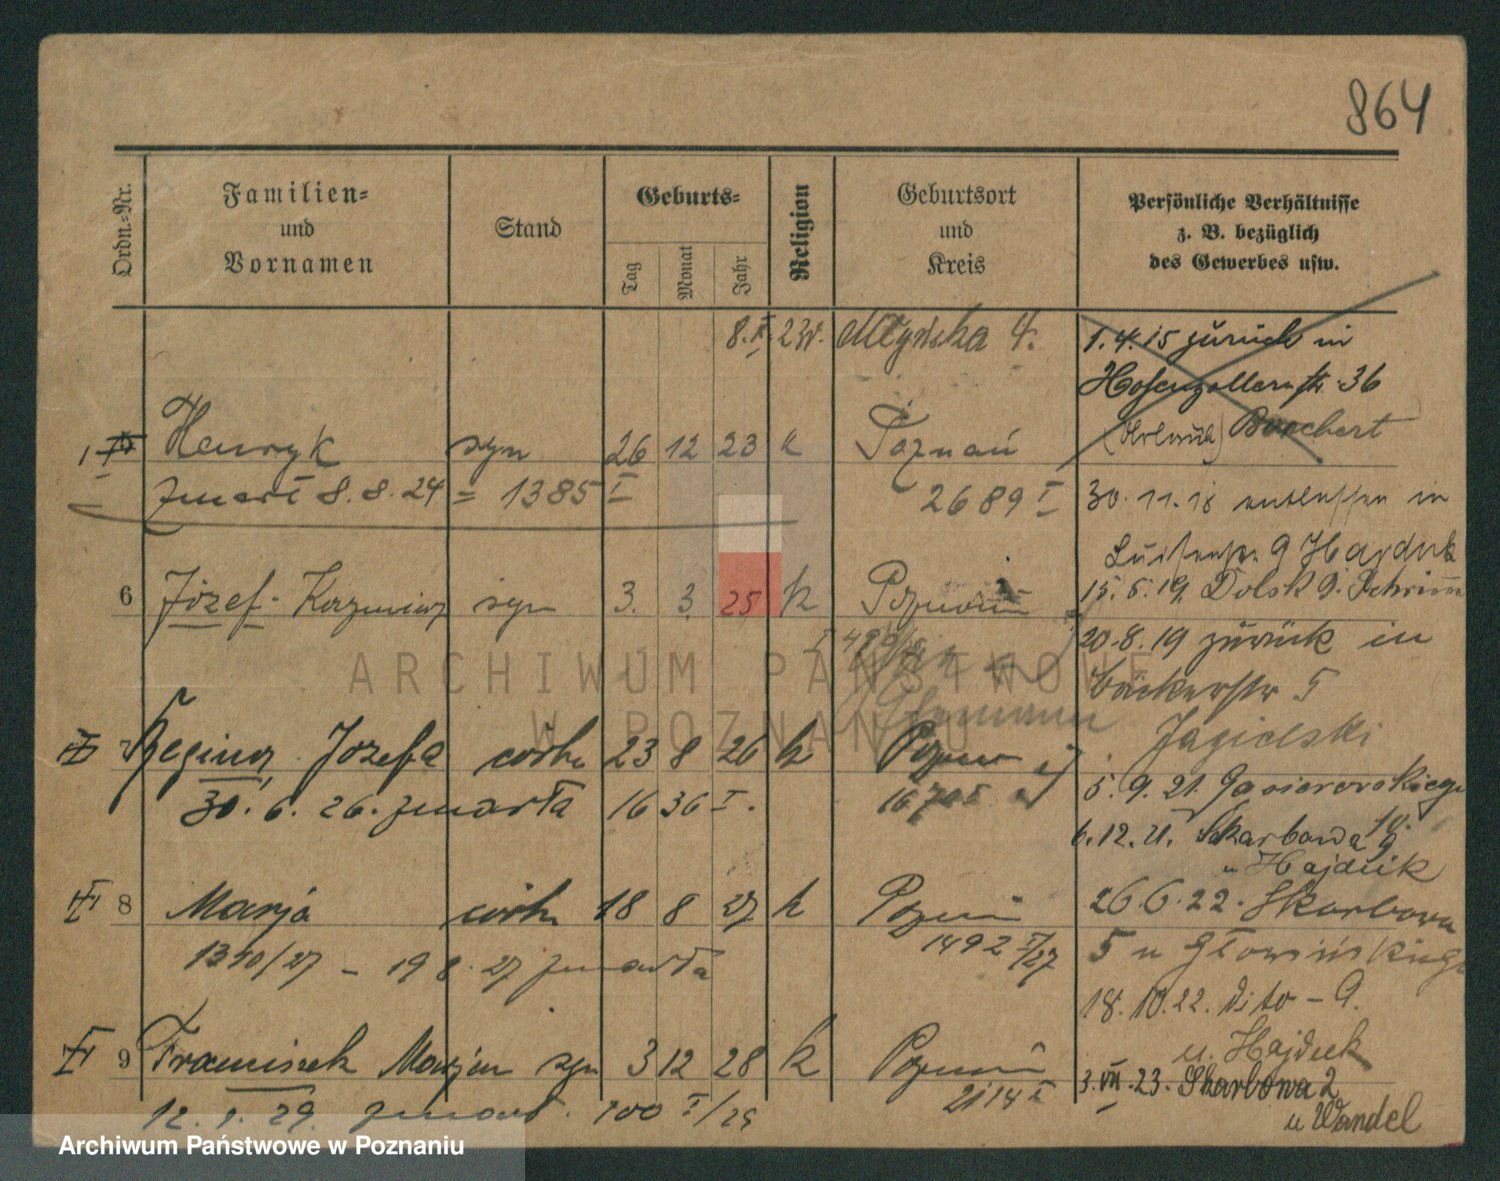 864
Ordn.-Nr.
Familien-
und
Vornamen
Stand
Geburts-
Tag
Monat
Jahr
Religion
Geburtsort
und
Kreis
Persönliche Verhältnisse
z. B. bezüglich
des Gewerbes usw.
8. 23. Młyńska 4.
1.4.15 zurück in
Hohenzollernstr. 36
(Urlaub) Borchert
Henryk syn 26 12 23 k Poznań
zmarł 8.8.24 = 1385 I
2689 I
30.11.18 entlassen in
Luisenstr. 9 Hajduk
6 Józef Kazimierz syn 3. 3. 25 k Poznań
15.5.19. Dolsk Schrimm
20.8.19 zurück in
Bäckerstr 5
Jagielski
7 Regina Józefa córka 23 8 26 k Poznań
30.6.26. zmarła 1636 I.
1670 I
5.9.21. Gąsiorowskiego
6.12.21. Skarbowa 9
u Hajduk
8 Marja córka 18 8 27 k Poznań
1340/27 – 19 8. 27 zmarła
1492 I/27
26.6.22. Skarbowa
5 u Głowińskiego
18.10.22. dito – 9.
u. Hajduk
9 Franciszek Marjan syn 3 12 28 k Poznań
2114 I
3.VII.23. Skarbowa 2
u Wandel
12.1.29. zmarł. 100 I/29
ARCHIWUM PAŃSTWOWE
W POZNANIU
Archiwum Państwowe w Poznaniu